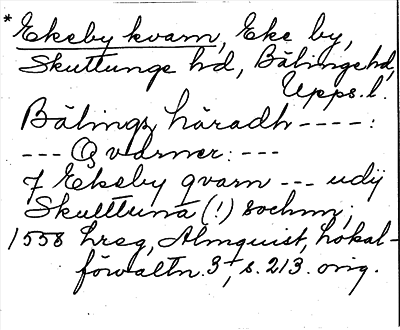 * Ekeby kvarn, Eke by,
Skuttunge hd, Bälinge hd,
Upps. l.
Bälings häradh ---- :
--- Qvarner: ---
7 Ekeby qvarn --- udij
Skulttuna (!) sochnn;
1558 hrsg, Almquist, Lokal-
förvaltn. 3, s. 213. orig.